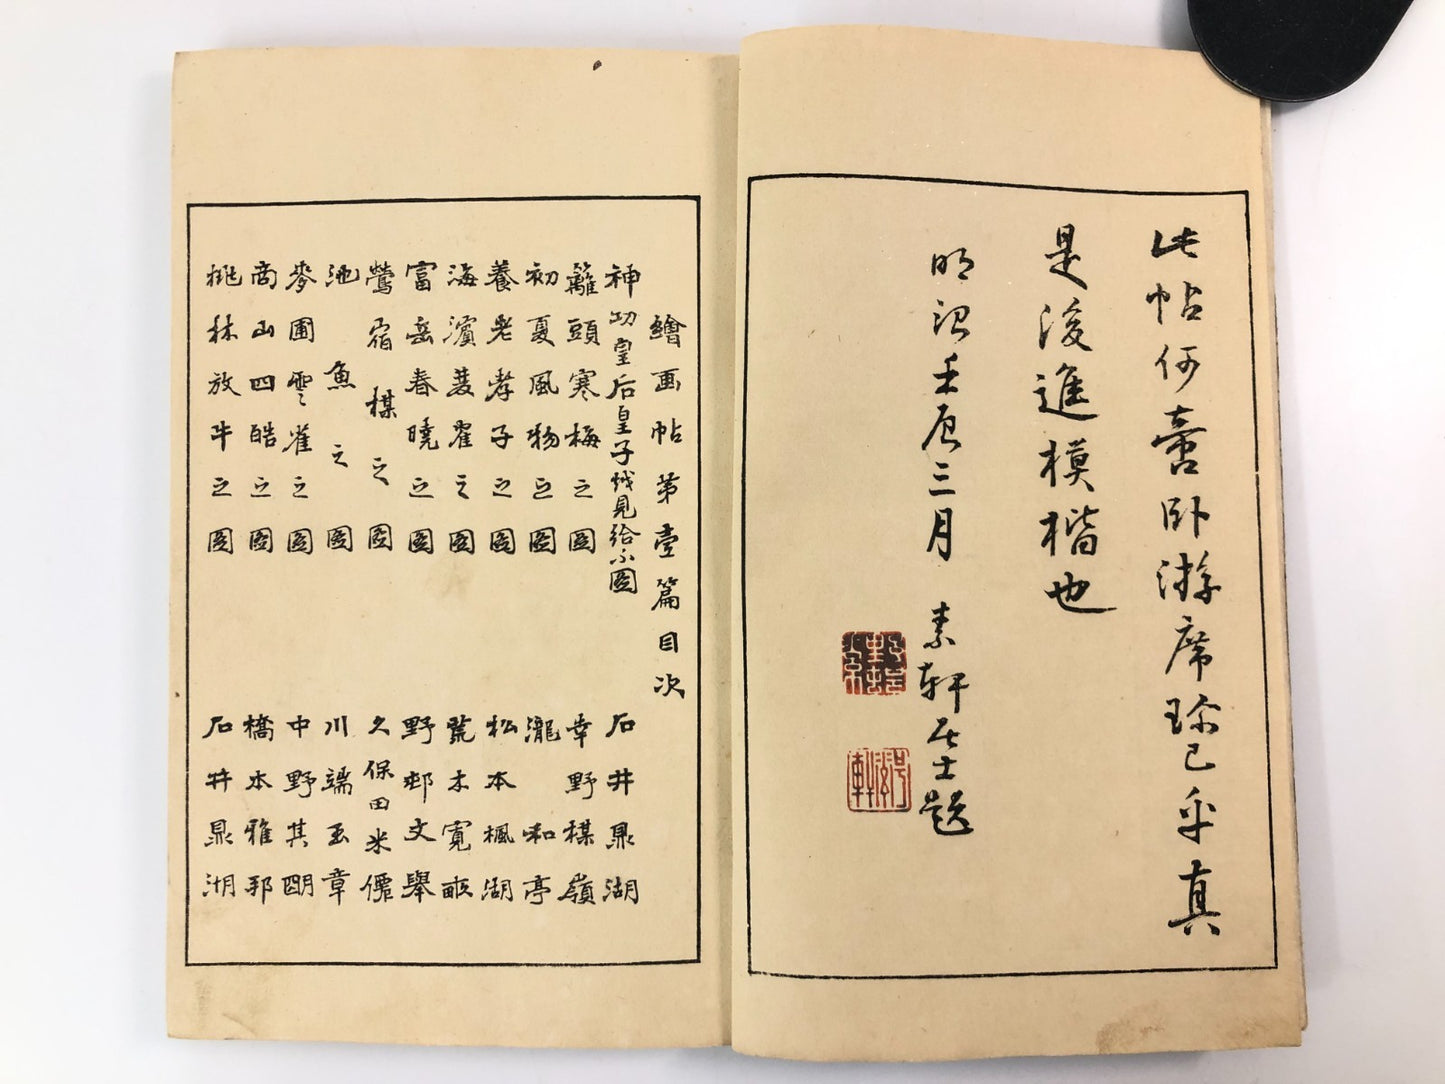 此帖何啻卧游席珎已乎真
是後進模楷也
明治壬辰三月 素軒居士題
繪画帖第壹篇目次
神功皇后皇子越見給ふ圖 石井鼎湖
籬頭寒梅之圖 幸野楳嶺
初夏風物之圖 瀧和亭
養老孝子之圖 松本楓湖
海濱之圖 荒木寛畝
富岳春曉之圖 野邨文舉
鶯宿楳之圖 久保田米僊
池魚之圖 川端玉章
麥圃雲雀之圖 中野其明
商山四皓之圖 橋本雅邦
桃林放牛之圖 石井鼎湖